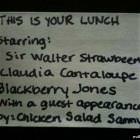 THIS IS YOUR LUNCH
Starring:
Sir Walter Strawbeer
Claudia Cantaloupe
Blackberry Jones
With a guest appearance
by: Chicken Salad Sammy